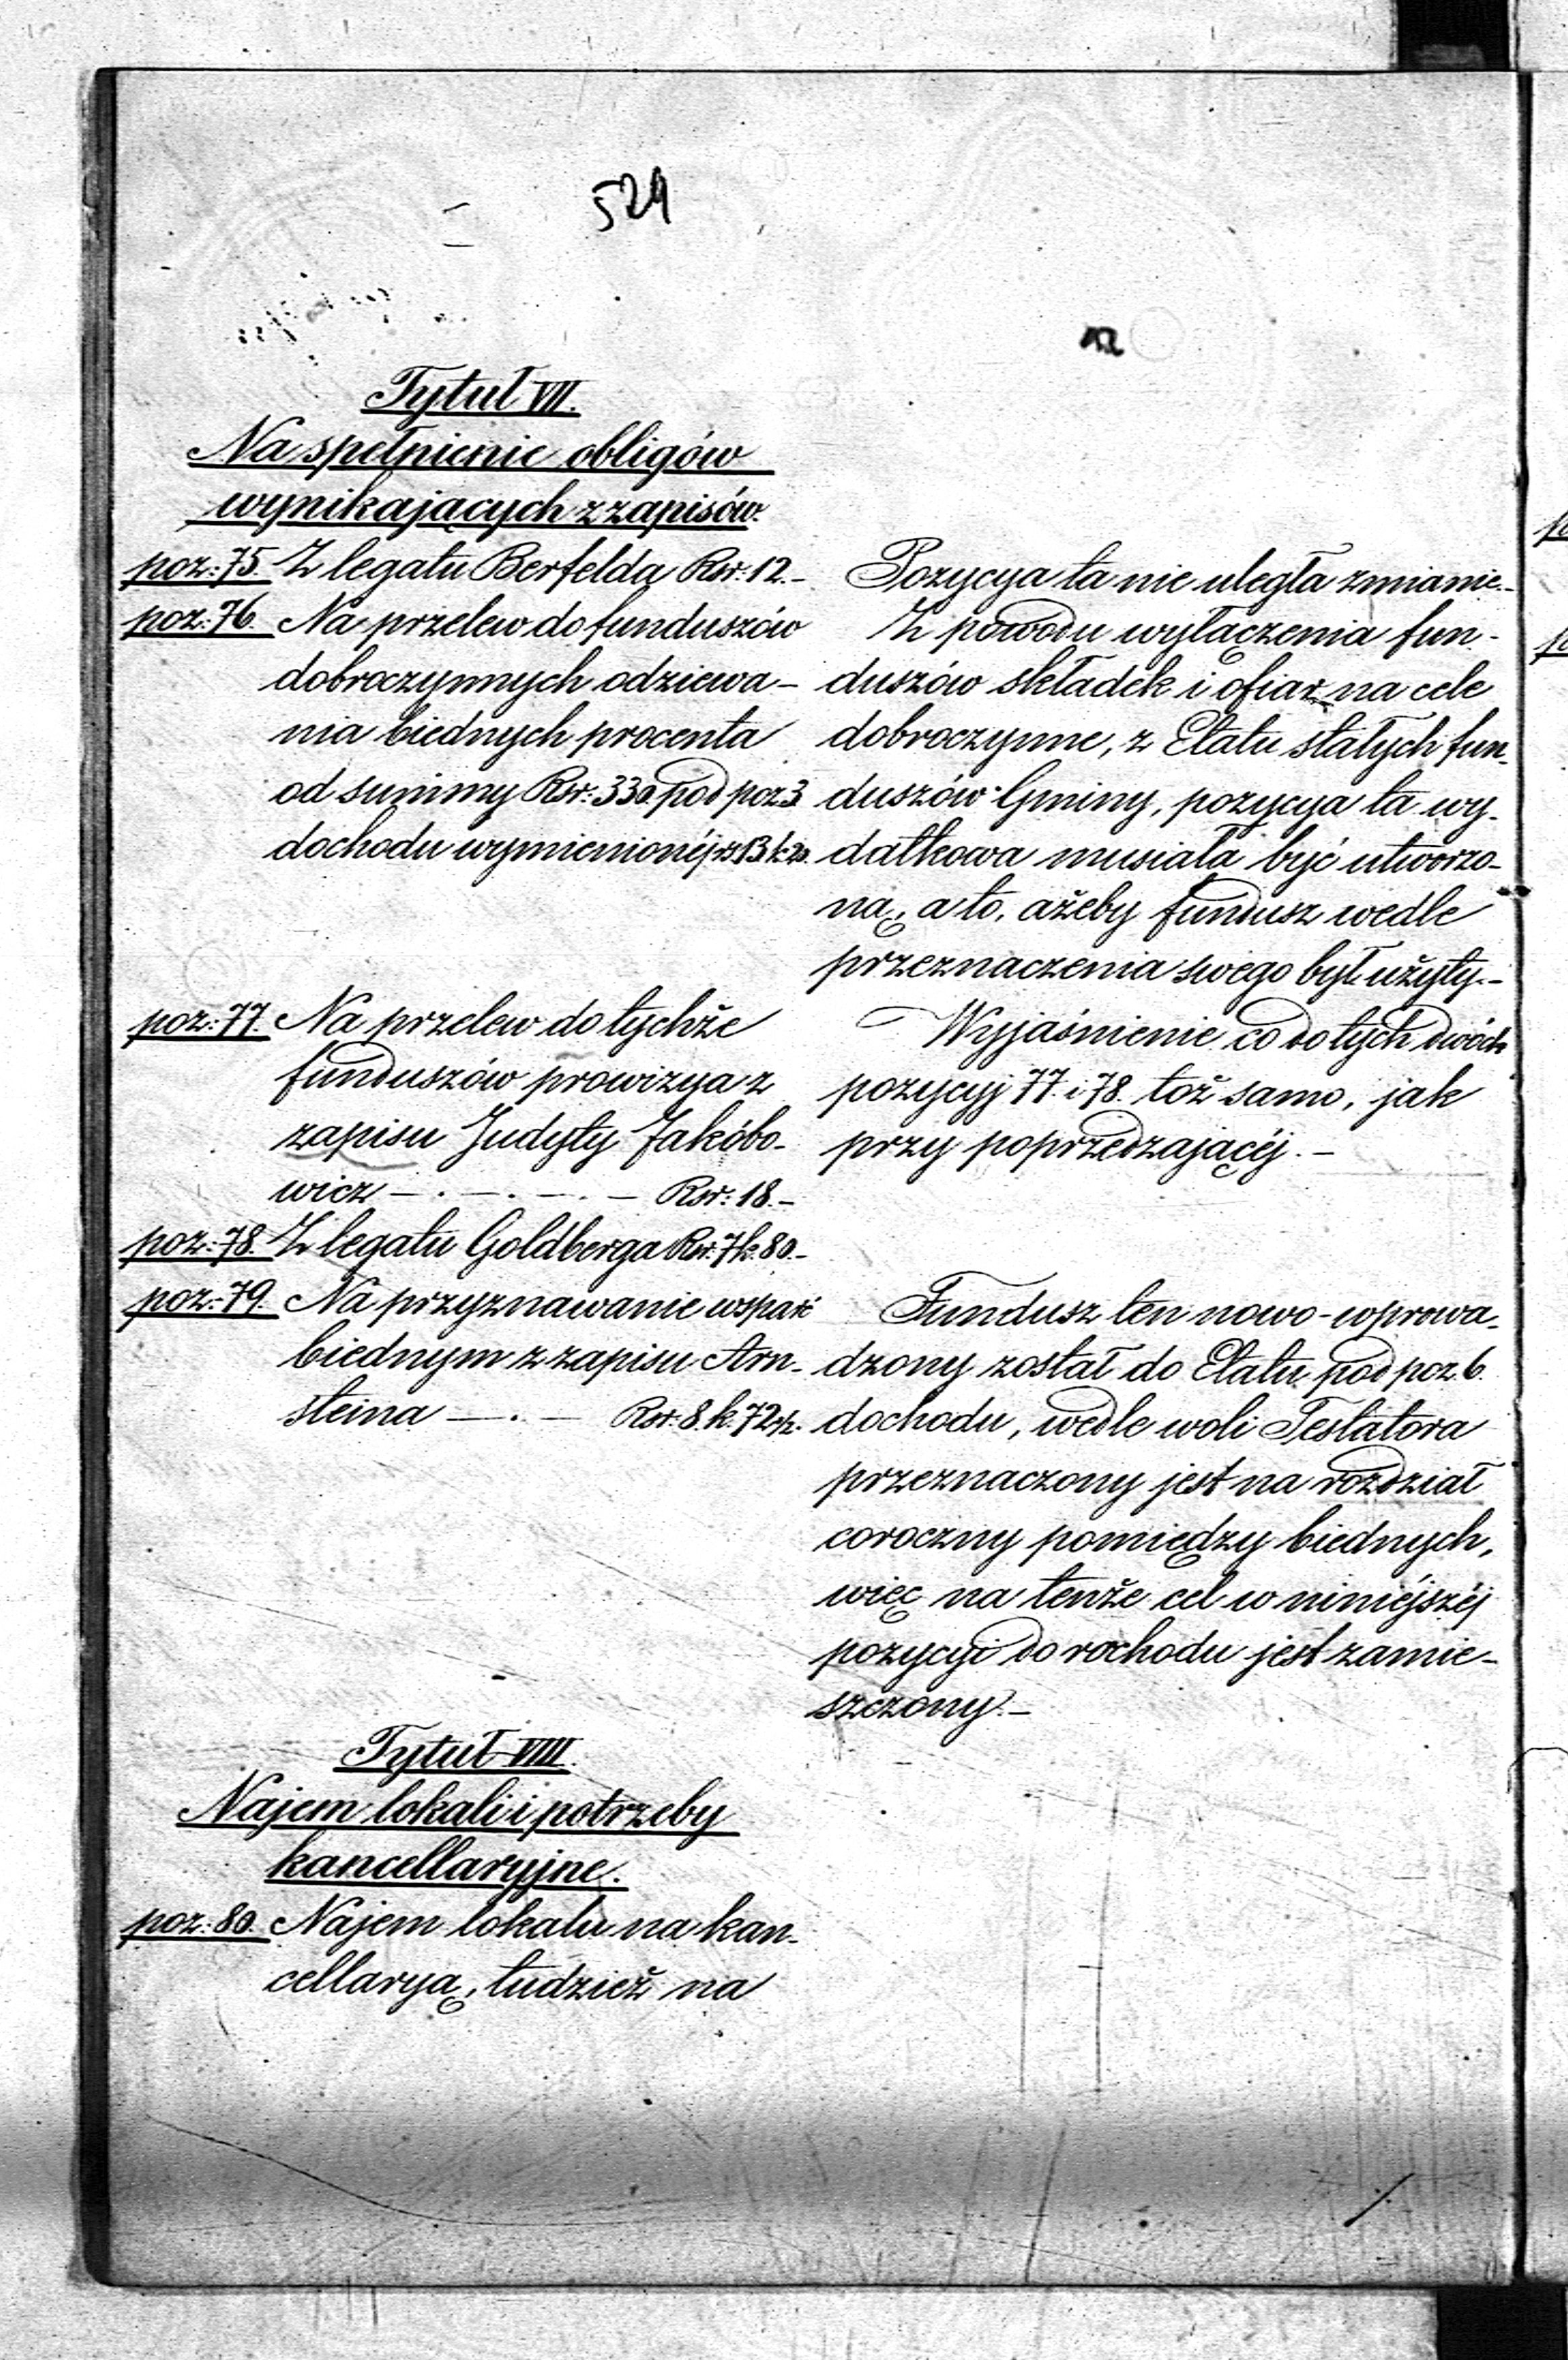 529
Tytuł VII.
Na spełnienie obligów
wynikających z zapisów.
poz: 75. Z legatu Berfelda Rsr: 12.–
poz: 76. Na przelew do funduszów
dobroczynnych odziewa–
nia biednych procenta
od summy Rsr: 330 pod poz 3
dochodu wymienionéj rs 13 k 20.
poz: 77. Na przelew do tychże
funduszów prowizya z
zapisu Judyty Jakóbo-
wicz – . – . – . – Rsr: 18.–
poz: 78. Z legatu Goldberga Rsr: 7 k: 80.–
poz: 79. Na przyznawanie wsparć
biednym z zapisu Arn-
steina – . – Rsr: 8. k. 72
Tytuł VIII.
Najem lokali i potrzeby
kancellaryjne.
poz: 80. Najem lokalu na kan-
cellaryą, tudzież na
Pozycya ta nie uległa zmianie.–
Z powodu wyłączenia fun-
duszów składek i ofiar na cele
dobroczynne, z Etatu stałych fun-
duszów Gminy, pozycya ta wy-
datkowa musiała być utworzo-
ną, a to, ażeby fundusz wedle
przeznaczenia swego był użyty.–
Wyjaśnienie co do tych dwóch
pozycyj 77. i 78. toż samo, jak
przy poprzedzającéj. –
Fundusz ten nowo-wprowa-
dzony został do Etatu pod poz. 6.
dochodu, wedle woli Testatora
przeznaczony jest na rozdział
coroczny pomiędzy biednych,
więc na tenże cel w niniéjszéj
pozycyi do rozchodu jest zamie-
szczony.–